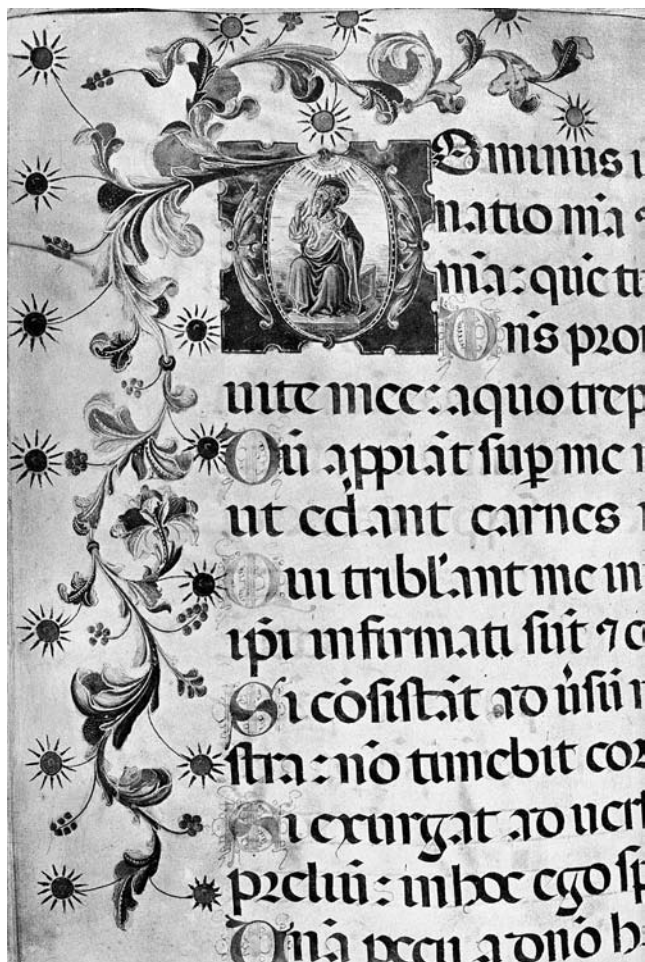 Ominus i
natio m̄a ⁊
m̄a: quē ti
Dn̄s pro
uite mee: a quo trep
Dū appiāt sup̱ me n
ut edant carnes
Qui tribl'ant me in
ip̄i infirmati sūt ⁊ c
Si cōsistāt ad ūsū
stra: nō timebit cor
Si exurgat ad uer
preliū: in hoc ego sp
Vnā pecii a dn̄o h